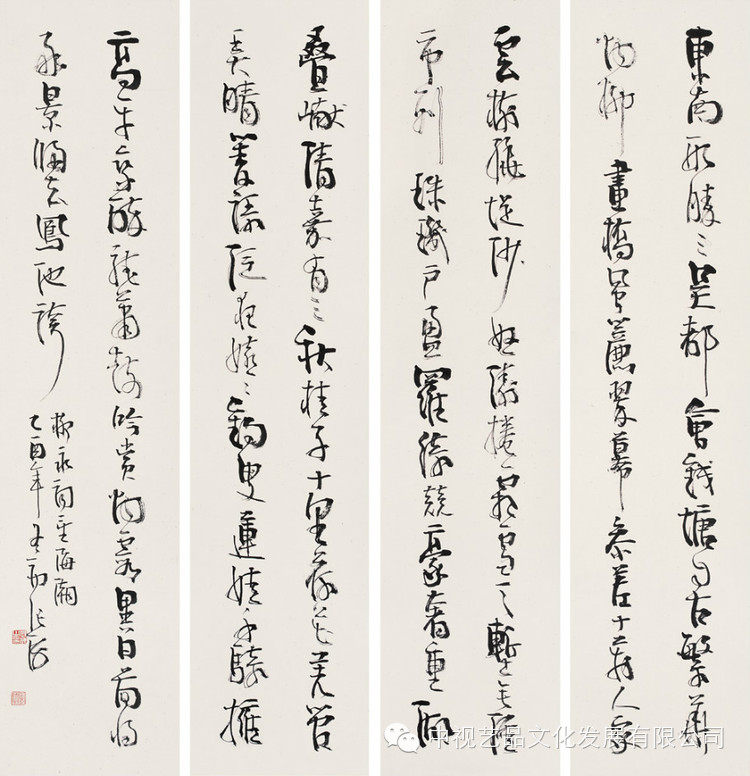 東南形勝三吳都會錢塘自古繁華
烟柳畫橋風簾翠幕參差十萬人家
雲樹繞堤沙怒濤捲霜雪天塹無涯
市列珠璣戶盈羅綺競豪奢重湖
疊巘清嘉有三秋桂子十里荷花羌管
弄晴菱歌泛夜嬉〻釣叟蓮娃千騎擁
高牙乘醉聽簫鼓吟賞烟霞異日圖將
好景歸去鳳池誇
柳永詞望海潮
乙酉年 張海
中视艺品文化发展有限公司